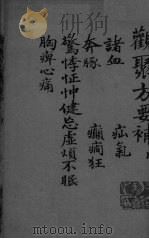 觀聚方要補
諸血　疝氣
奔豚　癲癇狂
驚悸怔忡健忘虛煩不眠
胸痺心痛